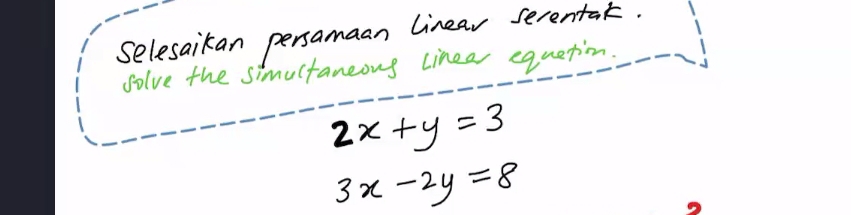 Selesaikan persamaan linear serentak.
Solve the simultaneous linear equation.
2x + y = 3
3x - 2y = 8
2